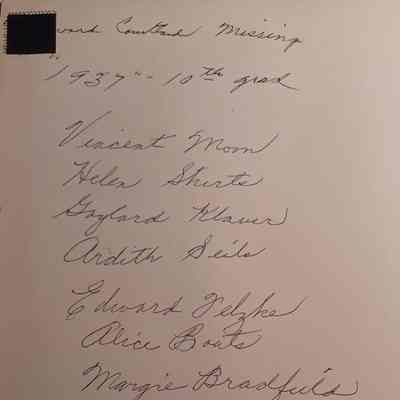 ward Courtland Missing
"1937" - 10th grad
Vincent Moon
Helen Shirts
Gaylard Klaver
Ardith Seils
Edward Felzke
Alice Boats
Margie Bradfield